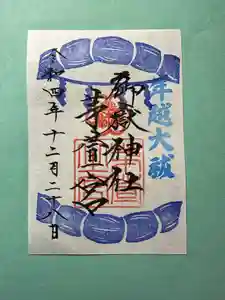 年越大祓
御嶽神社
茅萱宮
令和四年十二月二十八日